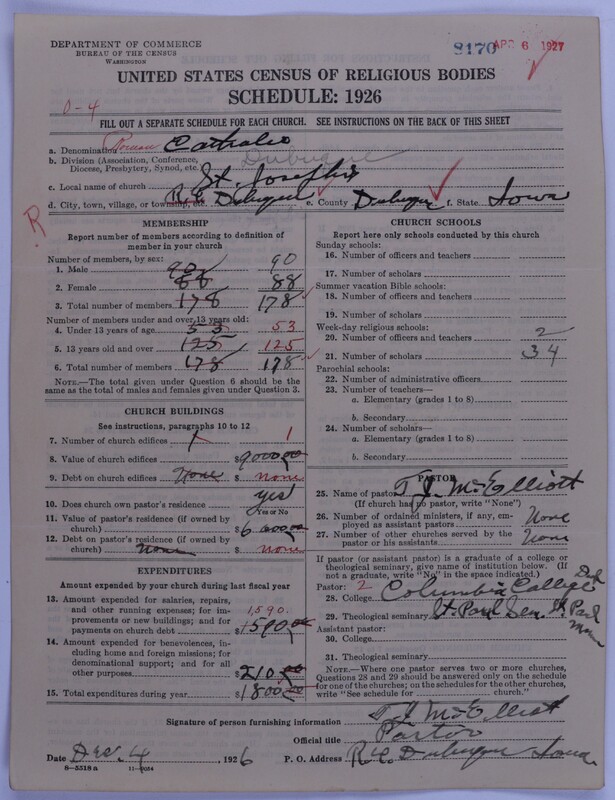 DEPARTMENT OF COMMERCE
BUREAU OF THE CENSUS
WASHINGTON
8170 APR 6 1927
UNITED STATES CENSUS OF RELIGIOUS BODIES
SCHEDULE: 1926
0-4
FILL OUT A SEPARATE SCHEDULE FOR EACH CHURCH. SEE INSTRUCTIONS ON THE BACK OF THIS SHEET
a. Denomination Roman Catholic
b. Division (Association, Conference, Diocese, Presbytery, Synod, etc. Dubuque
c. Local name of church St. Joseph's
d. City, town, village, or township, etc. Dubuque e. County Dubuque f. State Iowa
R
MEMBERSHIP
Report number of members according to definition of member in your church
Number of members, by sex:
1. Male 90 90
2. Female 88 88
3. Total number of members 178 178
Number of members under and over 13 years old:
4. Under 13 years of age 53 53
5. 13 years old and over 125 125
6. Total number of members 178 178
NOTE.—The total given under Question 6 should be the same as the total of males and females given under Question 3.
CHURCH BUILDINGS
See instructions, paragraphs 10 to 12
7. Number of church edifices 1 1
8. Value of church edifices $9000.00
9. Debt on church edifices None $ none
10. Does church own pastor's residence yes
Yes or No
11. Value of pastor's residence (if owned by church) $6000.00
12. Debt on pastor's residence (if owned by church) None $ none
EXPENDITURES
Amount expended by your church during last fiscal year
13. Amount expended for salaries, repairs, and other running expenses; for improvements or new buildings; and for payments on church debt 1,590. $1590.00
14. Amount expended for benevolences, including home and foreign missions; for denominational support; and for all other purposes $210.00
15. Total expenditures during year $1800.00
CHURCH SCHOOLS
Report here only schools conducted by this church
Sunday schools:
16. Number of officers and teachers
17. Number of scholars
Summer vacation Bible schools:
18. Number of officers and teachers
19. Number of scholars
Week-day religious schools:
20. Number of officers and teachers 2
21. Number of scholars 34
Parochial schools:
22. Number of administrative officers
23. Number of teachers—
a. Elementary (grades 1 to 8)
b. Secondary
24. Number of scholars—
a. Elementary (grades 1 to 8)
b. Secondary
PASTOR
25. Name of pastor T. J. McElliott
(If church has no pastor, write "None")
26. Number of ordained ministers, if any, employed as assistant pastors None
27. Number of other churches served by the pastor or his assistants None
If pastor (or assistant pastor) is a graduate of a college or theological seminary, give name of institution below. (If not a graduate, write "No" in the space indicated.)
Pastor: 2
28. College Columbia College Dub
29. Theological seminary St. Paul Sem. St Paul Minn
Assistant pastor:
30. College
31. Theological seminary
NOTE.—Where one pastor serves two or more churches, Questions 28 and 29 should be answered only on the schedule for one of the churches; on the schedules for the other churches, write "See schedule for church."
Signature of person furnishing information T. J. McElliott
Official title Pastor
Date Dec. 4, 1926 P. O. Address Dubuque Iowa
8—5518 a 11—9064